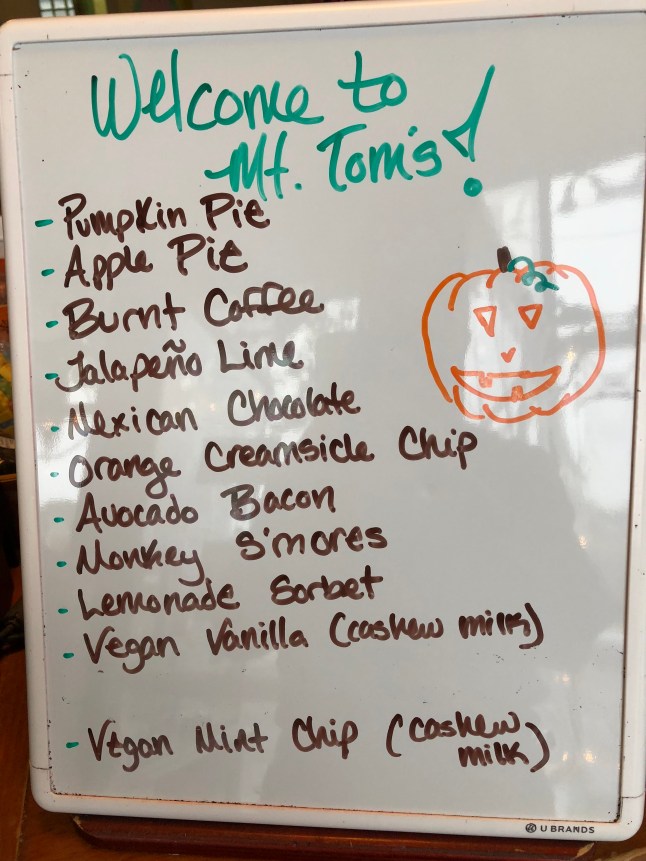 Welcome to
Mt. Tom's!
- Pumpkin Pie
- Apple Pie
- Burnt Coffee
- Jalapeño Lime
- Mexican Chocolate
- Orange Creamsicle Chip
- Avocado Bacon
- Monkey S'mores
- Lemonade Sorbet
- Vegan Vanilla (cashew milk)
- Vegan Mint Chip (cashew
milk)
U BRANDS